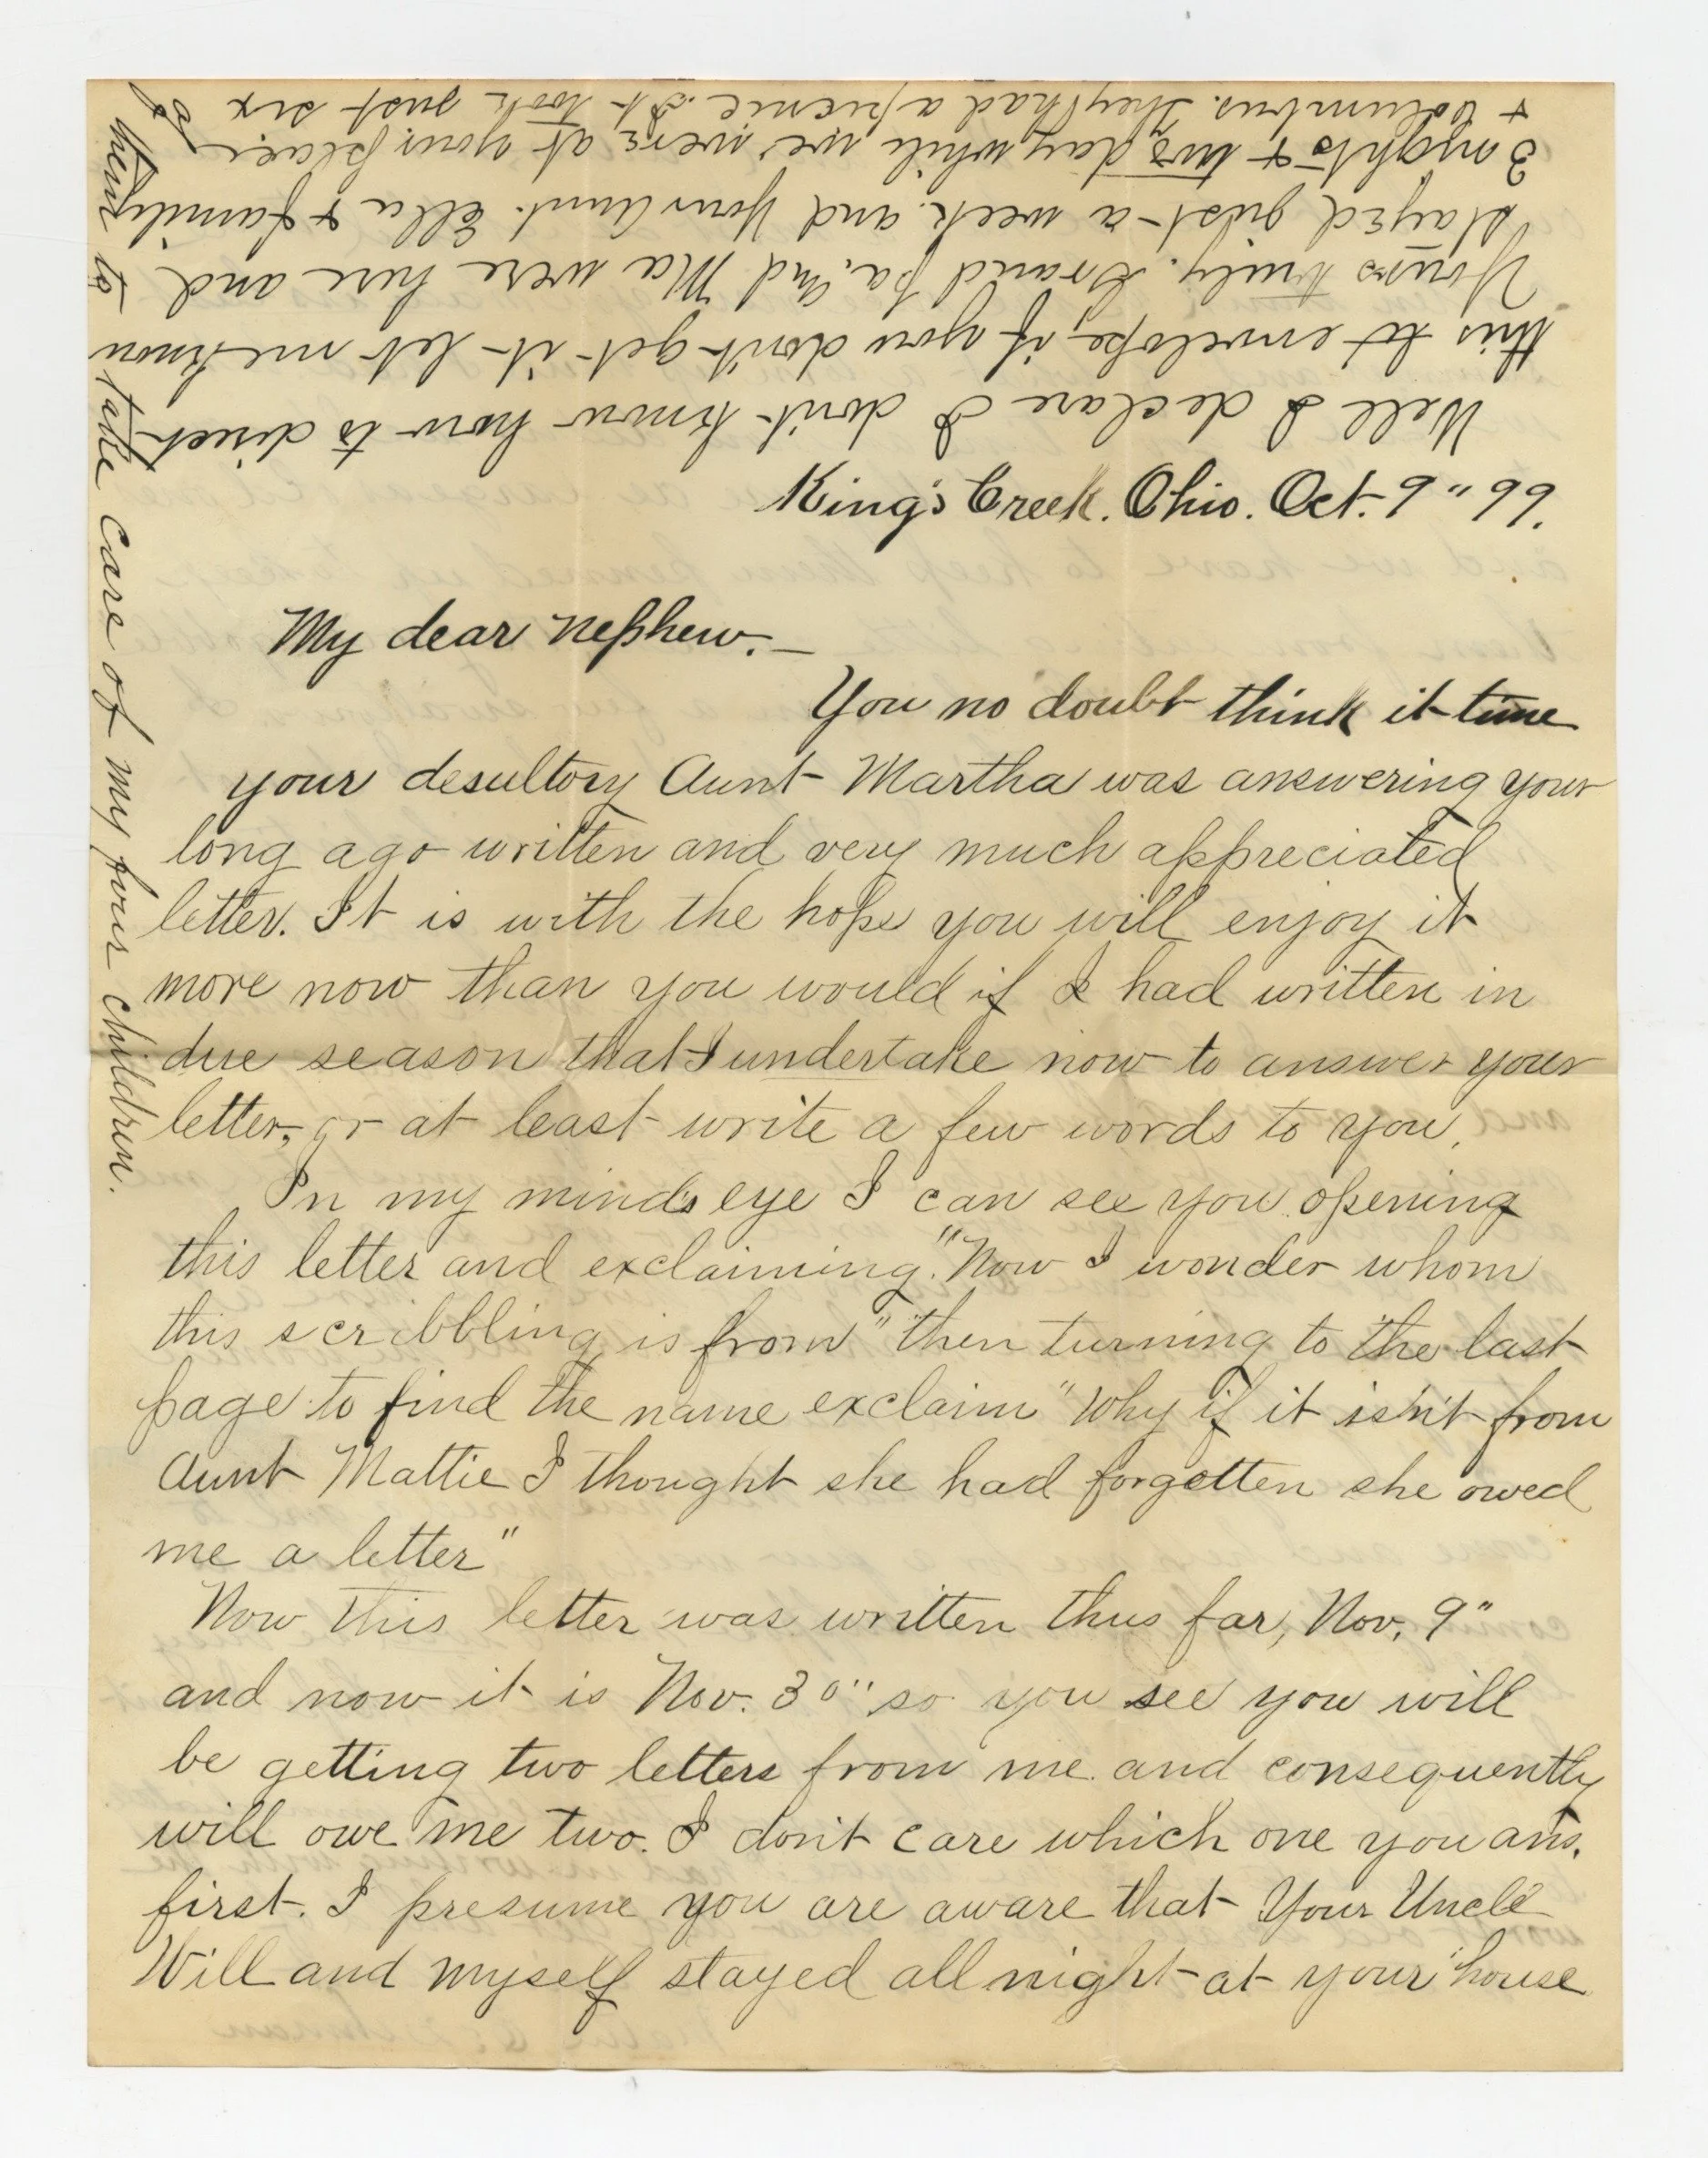 King's Creek. Ohio. Oct. 9" 99.
My dear nephew. —
You no doubt think it time
your desultory Aunt Martha was answering your
long ago written and very much appreciated
letter. It is with the hope you will enjoy it
more now than you would if I had written in
due season that I undertake now to answer your
letter, or at least write a few words to you.
In my mind's eye I can see you opening
this letter and exclaiming, "Now I wonder whom
this scribbling is from" then turning to the last
page to find the name exclaim "Why if it isn't from
Aunt Mattie I thought she had forgotten she owed
me a letter"
Now this letter was written thus far, Nov. 9"
and now it is Nov. 30" so you see you will
be getting two letters from me and consequently
will owe me two. I don't care which one you ans.
first. I presume you are aware that Your Uncle
Will and myself stayed all night at your house
Well I declare I don't know how to direct
this envelope, if you don't get it let me know
Yours truly. Grand pa. and Ma were here and
stayed just a week and Your Aunt Ella & family
3 nights & two day while we were at your place
& Columbus. they had a picnic. It took just six of
them to take care of my four children.